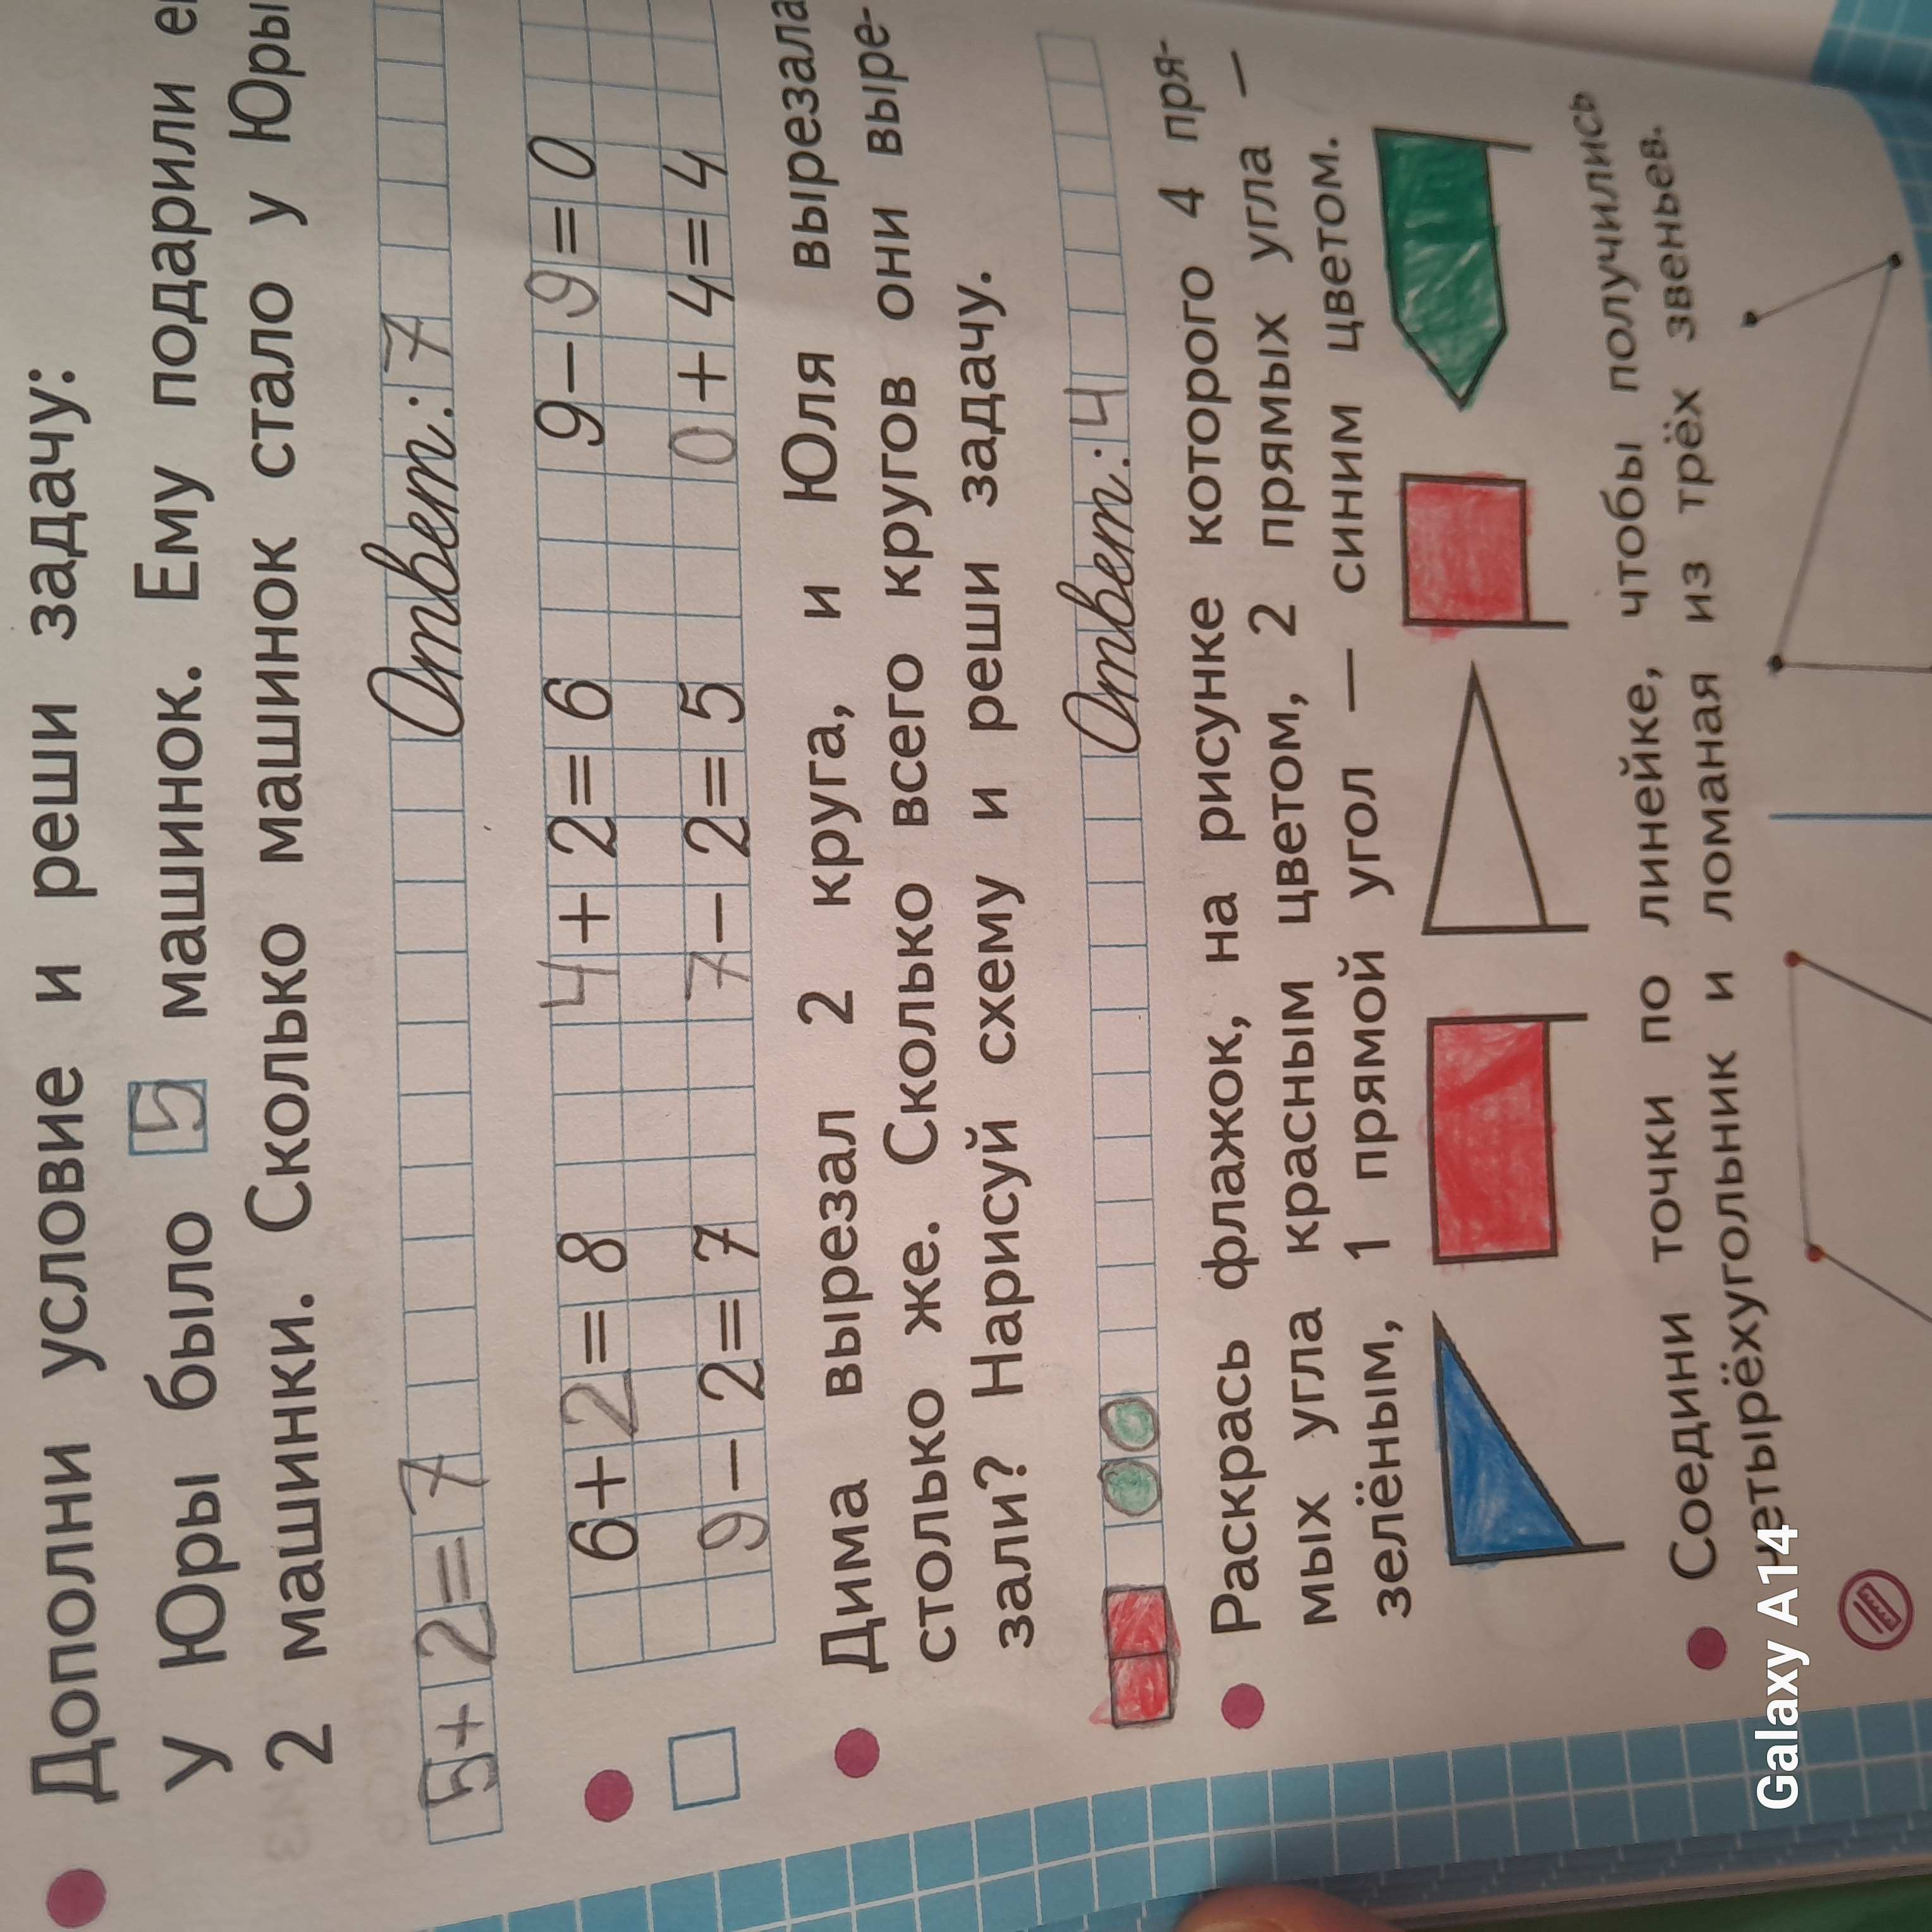 Дополни условие и реши задачу:
У Юры было 5 машинок. Ему подарили
2 машинки. Сколько машинок стало у Юры
5+2=7 Ответ: 7
6+2=8 4+2=6 9-9=0
9-2=7 7-2=5 0+4=4
Дима вырезал 2 круга, и Юля вырезала
столько же. Сколько всего кругов они выре-
зали? Нарисуй схему и реши задачу.
Ответ: 4
Раскрась флажок, на рисунке которого 4 пря-
мых угла красным цветом, 2 прямых угла —
зелёным, 1 прямой угол — синим цветом.
Соедини точки по линейке, чтобы получились
четырёхугольник и ломаная из трёх звеньев.
Galaxy A14